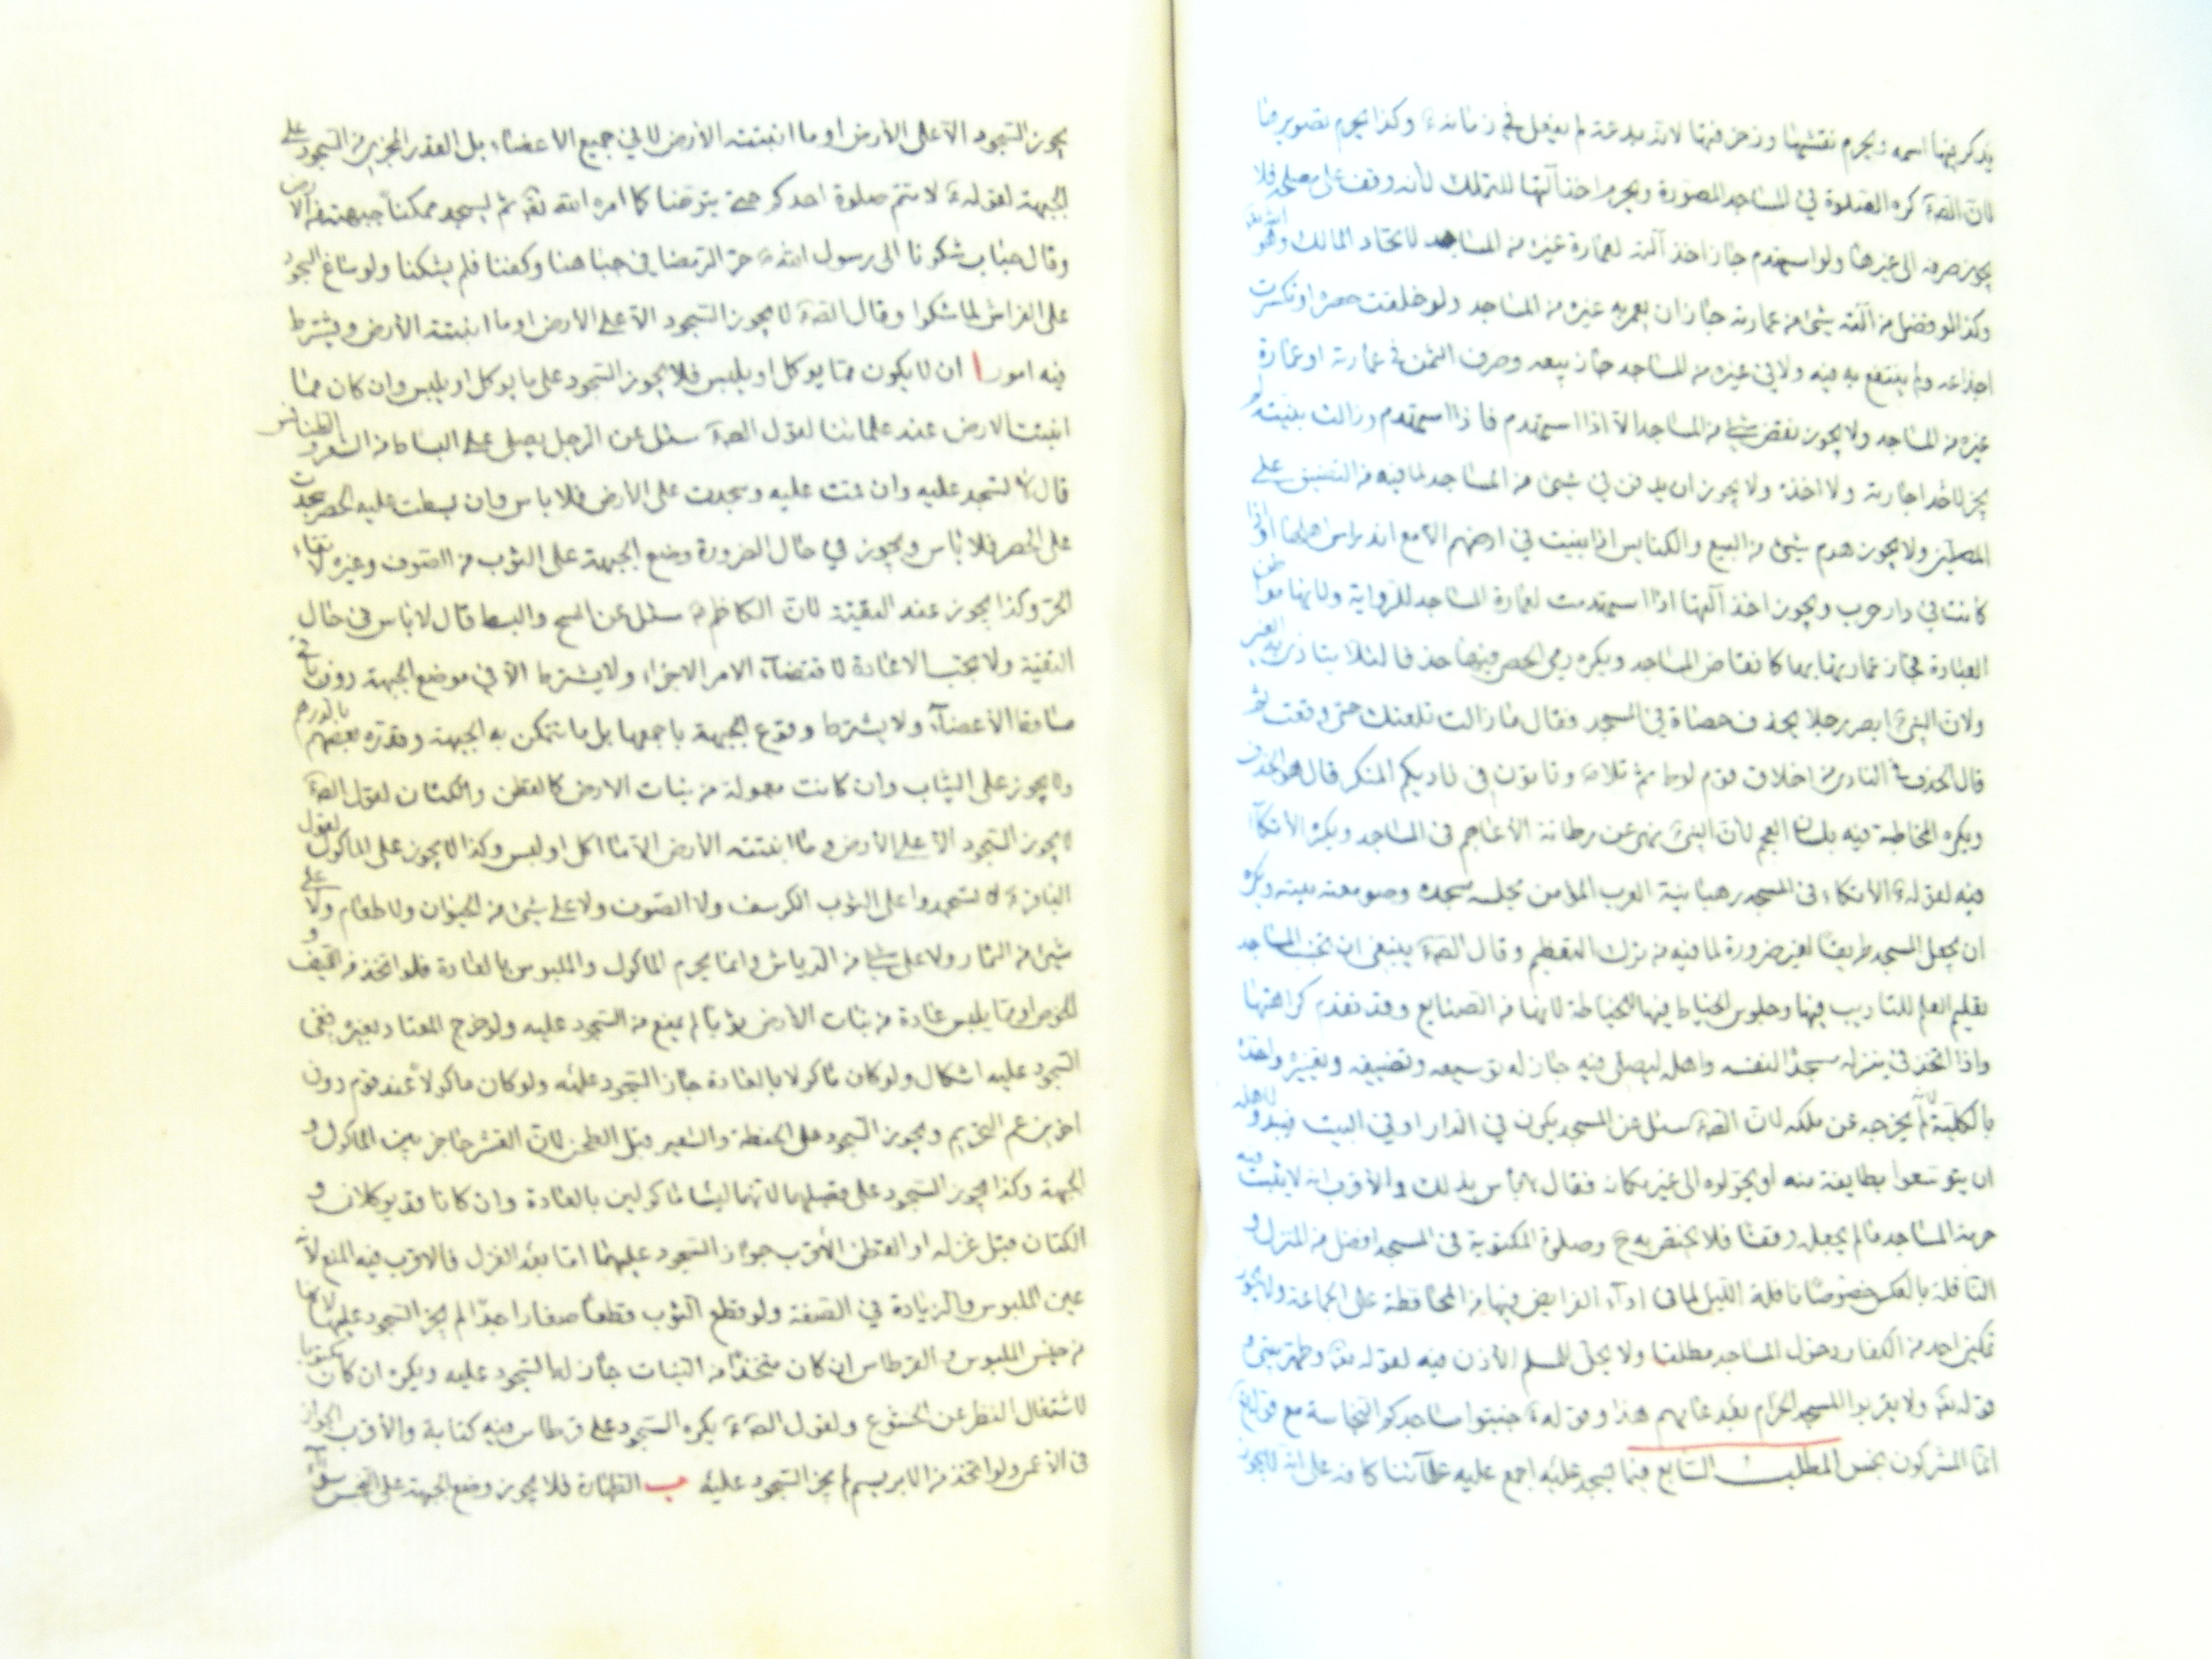 يذكر فيها اسمه ويحرم نقشها وزخرفتها لانه بدعة لم يفعل في زمانه ع وكذا يحرم تصويرها
لان الصادق ع كره الصلوة في المساجد المصورة ويحرم اخذ آلتها للتملك لأنه وقف على مصلحة فلا
يجوز صرفه الى غيرها ولو استهدم جاز اخذ آلته لعمارة غيره من المساجد لاتحاد المالك وهو الله تعالى
وكذا لو فضل من آلته شئ من عمارته جاز ان يعمر به غيره من المساجد ولو خلقت حصره او تكسرت
اجذاعه ولم ينتفع به فيه ولا في غيره من المساجد جاز بيعه وصرف الثمن في عمارته او عمارة
غيره من المساجد ولا يجوز نقض شئ من المساجد الا اذا استهدم فاذا استهدم وزالت بنيته لم
يجز لاحد اجارته ولا اخذه ولا يجوز ان يدفن في شئ من المساجد لما فيه من التضييق على
المصلين ولا يجوز هدم شئ من البيع والكنايس اذا بنيت في ارضهم الا مع اندراس اهلها او اذا
كانت في دار حرب ويجوز اخذ آلتها اذا استهدمت لعمارة المساجد للرواية ولانها مواطن
العبادة فجاز عمارتها بها كانقاض المساجد ويكره رمي الحصى فيها حذفا لئلا يتاذى به الغير
ولان النبي ص ابصر رجلا يحذف حصاة في المسجد فقال ما زالت تلعنك حتى وقعت ثم
قال الحذف في النادي من اخلاق قوم لوط ثم تلا ع وتاتون في ناديكم المنكر قال هو الحذف
ويكره المخاطبة فيه بلسان العجم لان النبي ص نهى عن رطانة الأعاجم في المساجد ويكره الاتكاء
فيه لقوله ع الاتكاء في المسجد رهبانية العرب المؤمن مجلسه مسجده وصومعته بيته ويكره
ان يجعل المسجد طريقا لغير ضرورة لما فيه من ترك التعظيم وقال الصادق ع ينبغي ان تجنب المساجد
تعليم المعلم للتاديب فيها وجلوس الخياط فيها للخياطة لانها من الصنايع وقد تقدم كراهتها
واذا اتخذ في منزله مسجدا لنفسه واهله ليصلي فيه جاز له توسيعه وتضييقه وتغييره واخذه
بالكلية لانه لم يخرجه عن ملكه لان الصادق ع سئل عن المسجد يكون في الدار او في البيت فيبدو لاهله
ان يتوسعوا بطايفة منه او يحولوه الى غير مكانه فقال لا باس بذلك والأقرب انه لا يثبت فيه
حرمة المساجد ما لم يجعله وقفا فلا يختص به ح وصلوة المكتوبة في المسجد افضل من المنزل و
النافلة بالعكس خصوصا نافلة الليل لما في اداء الفرايض فيها من المحافظة على الجماعة ولا يجوز
تمكين احد من الكفار دخول المساجد مطلقا ولا يحل للمسلم الأذن فيه لقوله تعالى وطهر بيتي و
قوله تعالى ولا يقربوا المسجد الحرام بعد عامهم هذا وقوله ع جنبوا مساجدكم النجاسة مع قوله تعالى
انما المشركون نجس المطلب السابع فيما يسجد عليه اجمع عليه علماؤنا كافة على انه لا يجوز
يجوز السجود الا على الأرض او ما انبتته الأرض لا في جميع الاعضاء بل القدر المجزي من السجود على
الجبهة لقوله ع لا تتم صلوة احدكم حتى يتوضأ كما امره الله تعالى ثم يسجد ممكنا جبهته من الارض
وقال خباب شكونا الى رسول الله ص حر الرمضا في جباهنا واكفنا فلم يشكنا ولو ساغ السجود
على الفراش لما شكوا وقال الصادق ع لا يجوز السجود الا على الارض او ما انبتته الأرض ويشترط
فيه امور ا ان لا يكون مما يوكل او يلبس فلا يجوز السجود على ما يوكل او يلبس وان كان مما
انبتت الارض عند علمائنا لقول الصادق ع سئل عن الرجل يصلي على البساط من الشعر والطنافس
قال لا تسجد عليه وان قمت عليه وسجدت على الارض فلا باس وان بسطت عليه الحصر وسجدت
على الحصر فلا باس ويجوز في حال الضرورة وضع الجبهة على الثوب من الصوف وغيره لاتقاء
الحر وكذا يجوز عند التقية لان الكاظم ع سئل عن المسح والبسط قال لا باس في حال
التقية ولا يجب الاعادة لاقتضاء الامر الاجزاء ولا يشترط الا في موضع الجبهة دون باقي
مساقط الأعضاء ولا يشترط وقوع الجبهة باجمعها بل ما تتمكن به الجبهة وقدره بعضهم بالدرهم
ولا يجوز على الثياب وان كانت معمولة من نبات الارض كالقطن والكتان لقول الصادق ع
لا يجوز السجود الا على الأرض وما انبتته الأرض الا ما اكل او لبس وكذا لا يجوز على المأكول لقول
الباقر ع لا تسجدوا على الثوب الكرسف ولا الصوف ولا على شئ من الحيوان ولا طعام ولا على
شئ من الثمار ولا على شئ من الرياش وانما يحرم المأكول والملبوس بالعادة فلو اتخذ من الليف و
الخوص او مما يلبس عادة من نبات الارض ثوبا لم يمنع من السجود عليه ولو خرج المعتاد بغيره ففي
السجود عليه اشكال ولو كان ماكولا بالعادة جاز السجود عليه ولو كان ماكولا عند قوم دون
اخرين عم التحريم ويجوز السجود على الحنطة والشعير قبل الطحن لان القشر حاجز بين المأكول و
الجبهة وكذا يجوز السجود على قصيلهما لانهما ليسا ماكولين بالعادة وان كانا قد يوكلان و
الكتان قبل غزله او القطن الأقرب جواز السجود عليهما اما بعد الغزل فالاقرب فيه المنع لأنه
عين الملبوس والزيادة في الصفة ولو قطع الثوب قطعا صغارا جدا لم يجز السجود عليها لانها
من جنس الملبوس والقرطاس ان كان متخذا من النبات جاز السجود عليه ويكره ان كان مكتوبا
لاشتغال النظر عن الخشوع ولقول الصادق ع يكره السجود على قرطاس فيه كتابة والأقرب الجواز
في الأعمى ولو اتخذ من الابريسم لم يجز السجود عليه ب الطهارة فلا يجوز وضع الجبهة على النجس سواء